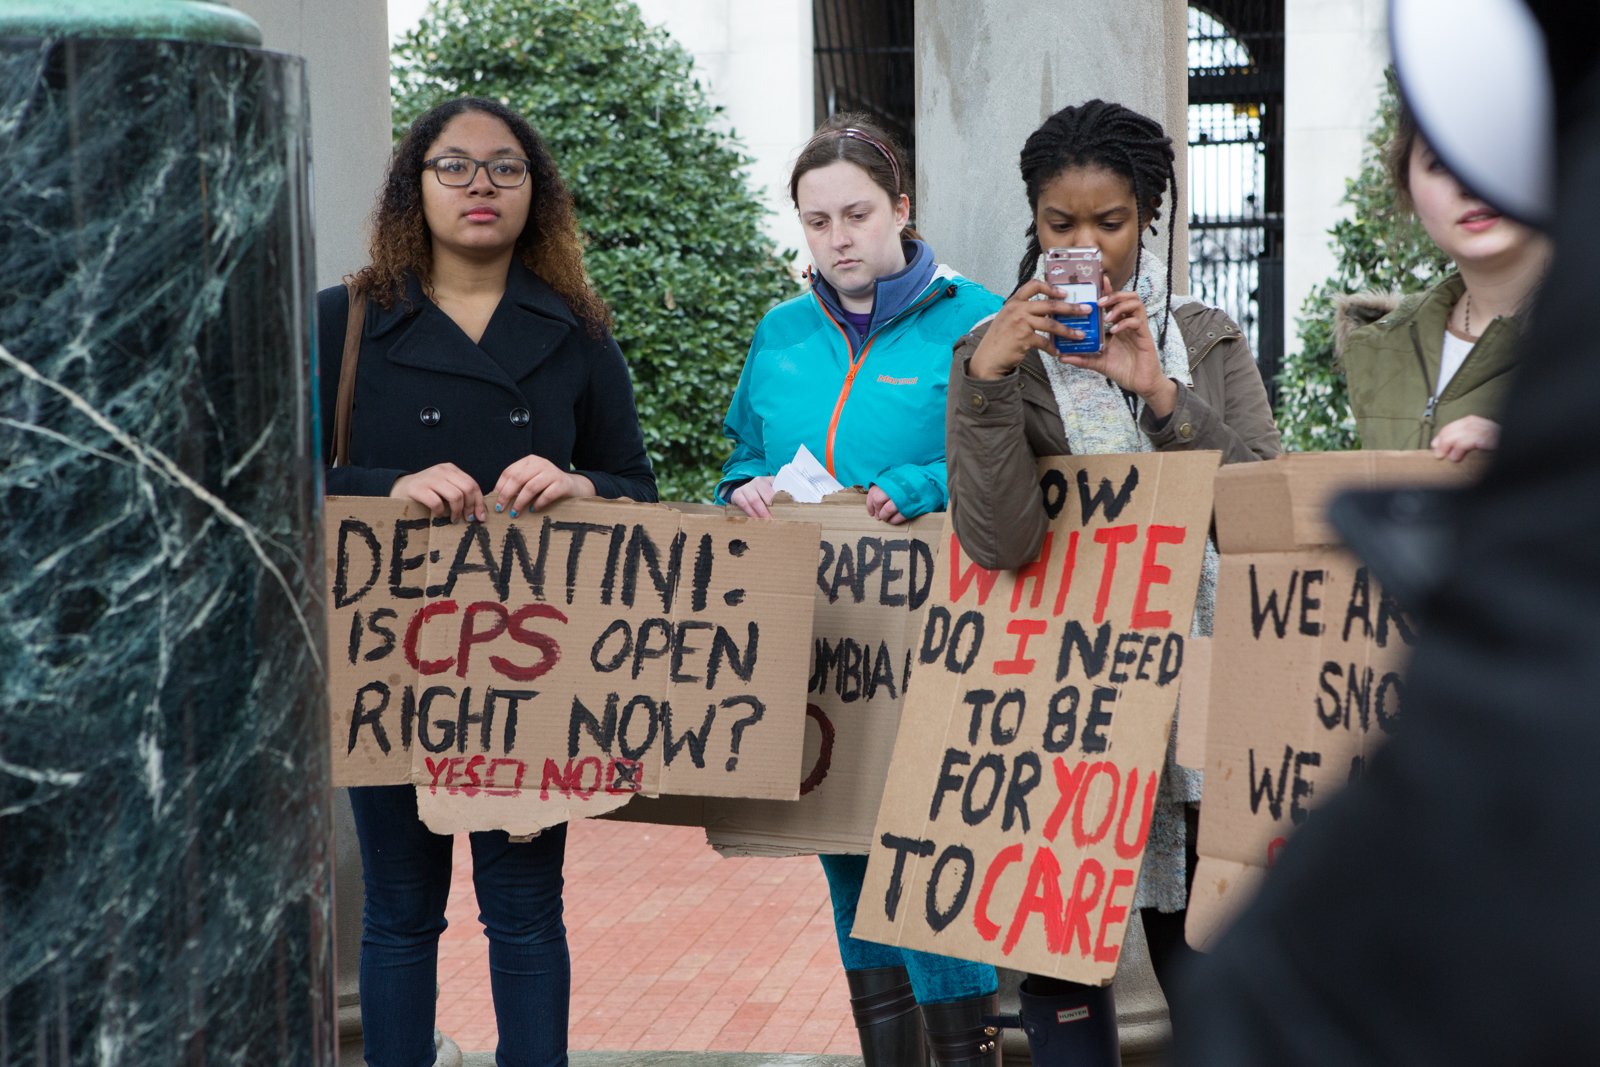 DEANTINI:
IS CPS OPEN
RIGHT NOW?
YES NO
RAPED
HOW
WHITE
DO I NEED
TO BE
FOR YOU
TO CARE
WE
WE
Marmot
HUNTER